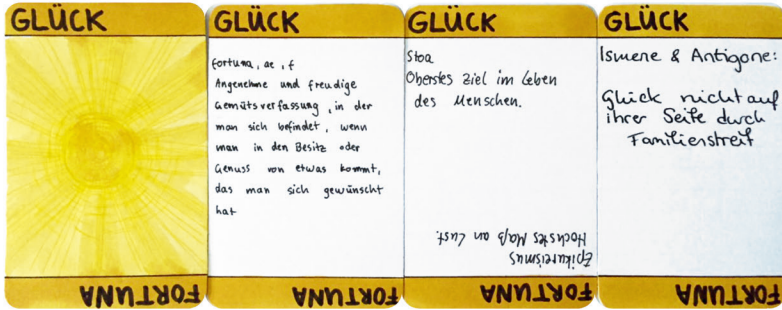 GLÜCK
FORTUNA
GLÜCK
fortuna, ae, f
Angenehme und freudige
Gemütsverfassung, in der
man sich befindet, wenn
man in den Besitz oder
Genuss von etwas kommt,
das man sich gewünscht
hat
FORTUNA
GLÜCK
Stoa
Oberstes Ziel im Leben
des Menschen.
Epikureismus
Höchstes Maß an Lust.
FORTUNA
GLÜCK
Ismene & Antigone:
Glück nicht auf
ihrer Seite durch
Familienstreit
FORTUNA